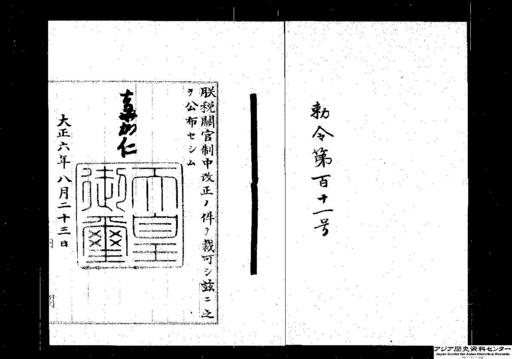 勅令第百十一号
朕税關官制中改正ノ件ヲ裁可シ茲ニ之
ヲ公布セシム
嘉仁
天皇
御璽
大正六年八月二十三日
アジア歴史資料センター
Japan Center for Asian Historical Records